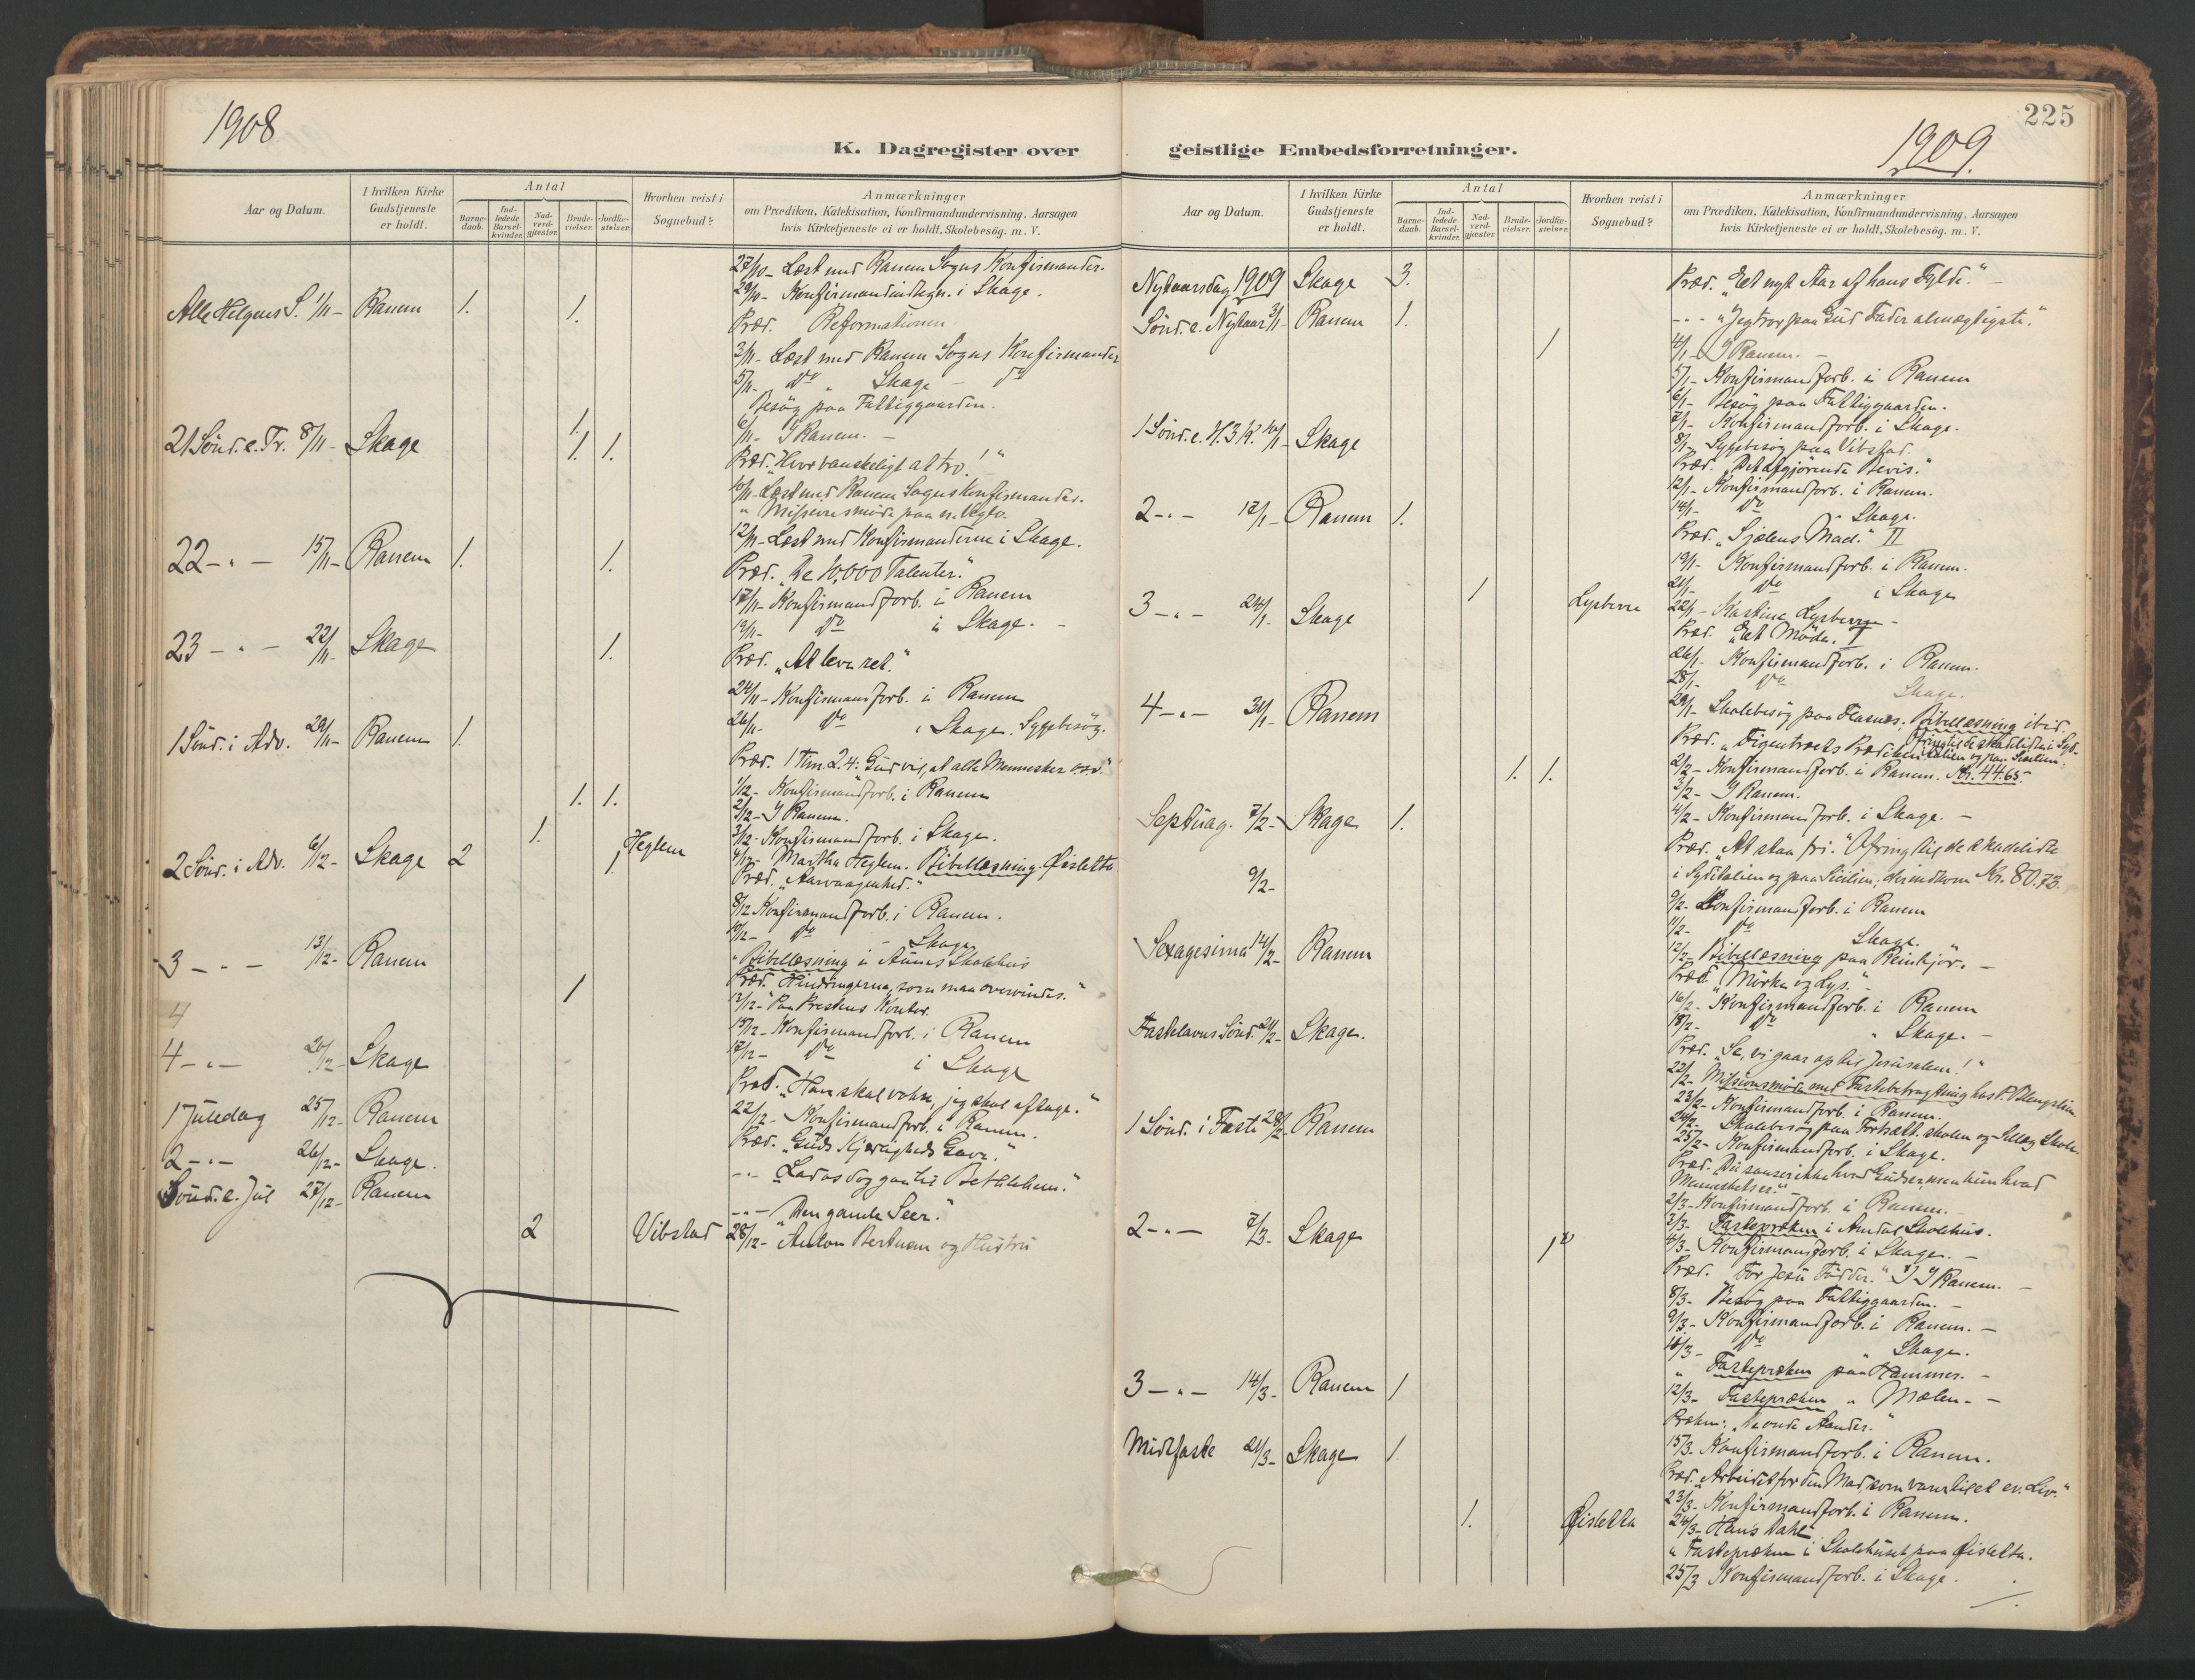 1908
K. Dagregister over
Aar og Datum.
I hvilken Kirke Gudstjeneste er holdt.
Antal
Barne-daab.
Ind-ledede Barsel-kvinder.
Nad-verd-gjæster.
Brude-vielser.
Jordfæ-stelser.
Hvorhen reist i Sognebud?
Anmærkninger
om Prædiken, Katekisation, Konfirmandundervisning, Aarsagen
hvis Kirketjeneste ei er holdt, Skolebesøg. m. V.
27/10- Læst med Ranem Sogns Konfirmander.
29/10- Konfirmandindtegn. i Skage.
Alle Helgens S. 1/11- Ranem 1. 1.
Præd. Reformationen
3/11- Læst med Ranem Sogns Konfirmander
5/11- do " Skage - do
Besøg paa Fattiggaarden.
1.
6/11- I Ranem. -
21 Sønd. e. Tr. 8/11- Skage 1. 1.
Præd. "Hvor vanskeligt at tro!"
10/11- Læst med Ranem Sogns Konfirmander.
" Missionsmøde paa n. Veglo.
12/11- Læst med Konfirmanderne i Skage.
22 - " - 15/11- Ranem 1. 1.
Præd. "De 10,000 Talenter."
17/11- Konfirmandforb. i Ranem
19/11- do i Skage. -
23 - " - 22/11- Skage 1.
Præd. "At leve ret."
24/11- Konfirmandforb. i Ranem
26/11- do i Skage. Sygebesøg.
1 Sønd. i Adv. 29/11- Ranem 1.
Præd. 1 Tim. 2.4: Gud vil, at alle Mennesker o.s.v."
1/12- Konfirmandforb. i Ranem
1. 1.
2/12- I Ranem.
3/12- Konfirmandforb. i Skage.
1. Heglem
4/12- Martha Heglem. Bibellæsning Øisletta
2 Sønd. i Adv. 6/12- Skage 2 1
Præd. "Aarvaagenhed."
8/12 Konfirmandforb. i Ranem.
10/12- do - Skage
" Bibellæsning i Aunes Skolehus
3 - " - 13/12- Ranem
Præd. "Hindringerne, som maa overvindes."
1
13/12- Paa Prestens Kontor.
15/12- Konfirmandforb. i Ranem
17/12- do i Skage
4
4 - " - 20/12- Skage
Præd. "Han skal vokse, jeg skal aftage."
22/12- Konfirmandforb. i Ranem.
1 Juledag 25/12- Ranem
Præd. "Guds Kjærligheds Gave."
2 - " - 26/12- Skage.
- " - Lad os dog gaa til Bethlehem."
Sønd. e. Jul 27/12- Ranem
- " - "Den gamle Seer."
2 Vibstad
28/12- Anton Bertnem og Hustru
225
1909.
geistlige Embedsforretninger.
Aar og Datum.
I hvilken Kirke Gudstjeneste er holdt.
Antal
Barne-daab.
Ind-ledede Barsel-kvinder.
Nad-verd-gjæster.
Brude-vielser.
Jordfæ-stelser.
Hvorhen reist i Sognebud?
Anmærkninger
om Prædiken, Katekisation, Konfirmandundervisning, Aarsagen
hvis Kirketjeneste ei er holdt, Skolebesøg. m. V.
Nytaarsdag 1909 Skage 3.
Præd. "Et nyt Aar af hans Fylde." -
Sønd. e. Nytaar 3/1- Ranem 1.
- " - "Jeg tror paa Gud Fader almægtigste."
1
4/1- I Ranem. -
5/1- Konfirmandforb. i Ranem
6/1- Besøg paa Fattiggaarden.
7/1- Konfirmandforb. i Skage.
8/1- Sygebesøg paa Vibstad.
1 Sønd. e. H. 3 K. 10/1- Skage
Præd. "Det afgjørende Bevis."
12/1- Konfirmandforb. i Ranem.
14/1- do " Skage.
2 - " - 17/1- Ranem 1.
Præd. "Sjælens Mad." II
19/1- Konfirmandforb. i Ranem.
21/1- do i Skage
1 Lysberre
22/1- Kastine Lysberre -
3 - " - 24/1- Skage
Præd. "Et Møde. I
26/1- Konfirmandforb. i Ranem.
28/1- do Skage.
29/1- Skolebesøg paa Flasnes. Bibellæsning ibid.
4 - " - 31/1- Ranem
Præd. "Figentræets Prædiken". Ofring til de skadelidte i Syd-
italien og paa Sicilien:
2/2- Konfirmandforb. i Ranem. Kr. 44.65 -
1. 1.
3/2- I Ranem.
4/2- Konfirmandforb. i Skage. -
Septuag. 7/2- Skage 1.
Præd. "At staa fri." Ofring til de skadelidte
i Syditalien og paa Sicilien, der indkom Kr. 80.73.
9/2-
9/2- Konfirmandforb. i Ranem
11/2- do Skage.
12/2- Bibellæsning paa Reinkjør. -
Sexagesima 14/2- Ranem
Præd. "Mørke og Lys."
16/2- Konfirmandforb. i Ranem
18/2- do " Skage. -
Fastelavns Sønd. 21/2- Skage.
Præd. "Se, vi gaar op til Jerusalem!"
22/2- Missionsmøde med Fastebetragtning hos P.
23/2- Konfirmandforb. i Ranem.
24/2- Skolebesøg paa Fortsætt. skolen og Skole
25/2- Konfirmandforb. i Skage.
1 Sønd. i Faste 28/2- Ranem
Præd. Du sanser ikke hvad Guds er, men kun hvad
Menneskets er." -
2/3- Konfirmandforb. i Ranem. -
3/3- Fastepræken i Amdal Skolehus.
4/3- Konfirmandforb. i Skage. -
2 - " - 7/3- Skage 1
Præd. "For Jesu Fødder." I Ranem. -
8/3- Besøg paa Fattiggaarden. -
9/3- Konfirmandforb. i Ranem. -
10/3- do " Skage.
" Fastepræken paa Hammer. -
12/3- Fastepræken " Mælen. -
3 - " - 14/3- Ranem 1
Præken: "onde Aander."
15/3- Konfirmandforb. i Ranem.
Midtfaste 21/3- Skage 1
Præd. "Arbeidet for den Mad, som varer til et ev. Liv."
23/3- Konfirmandforb. i Ranem.
1. Øisletta
24/3- Hans Dahl
" Fastepræken i Skolehuset paa Øisletta.
25/3 Konfirmandforb. i Skage.